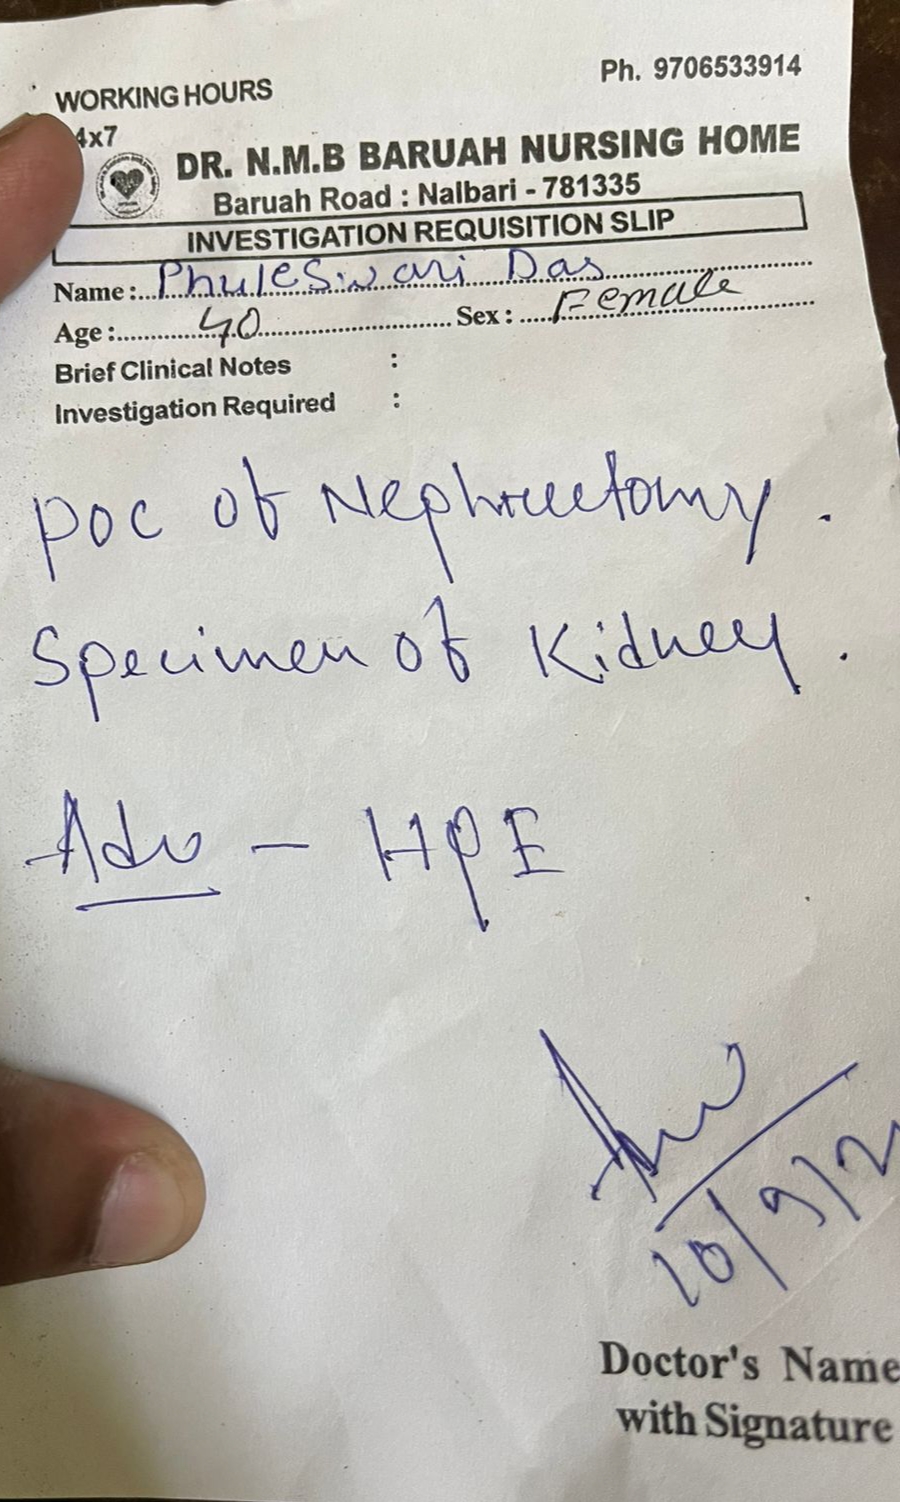 WORKING HOURS
Ph. 9706533914
4x7
DR. N.M.B BARUAH NURSING HOME
Baruah Road : Nalbari - 781335
INVESTIGATION REQUISITION SLIP
Name : Phuleswari Das
Age : 40 Sex : Female
Brief Clinical Notes :
Investigation Required :
POC of Nephrectomy .
Specimen of Kidney .
Adv - HPE
10/9/2
Doctor's Name
with Signature